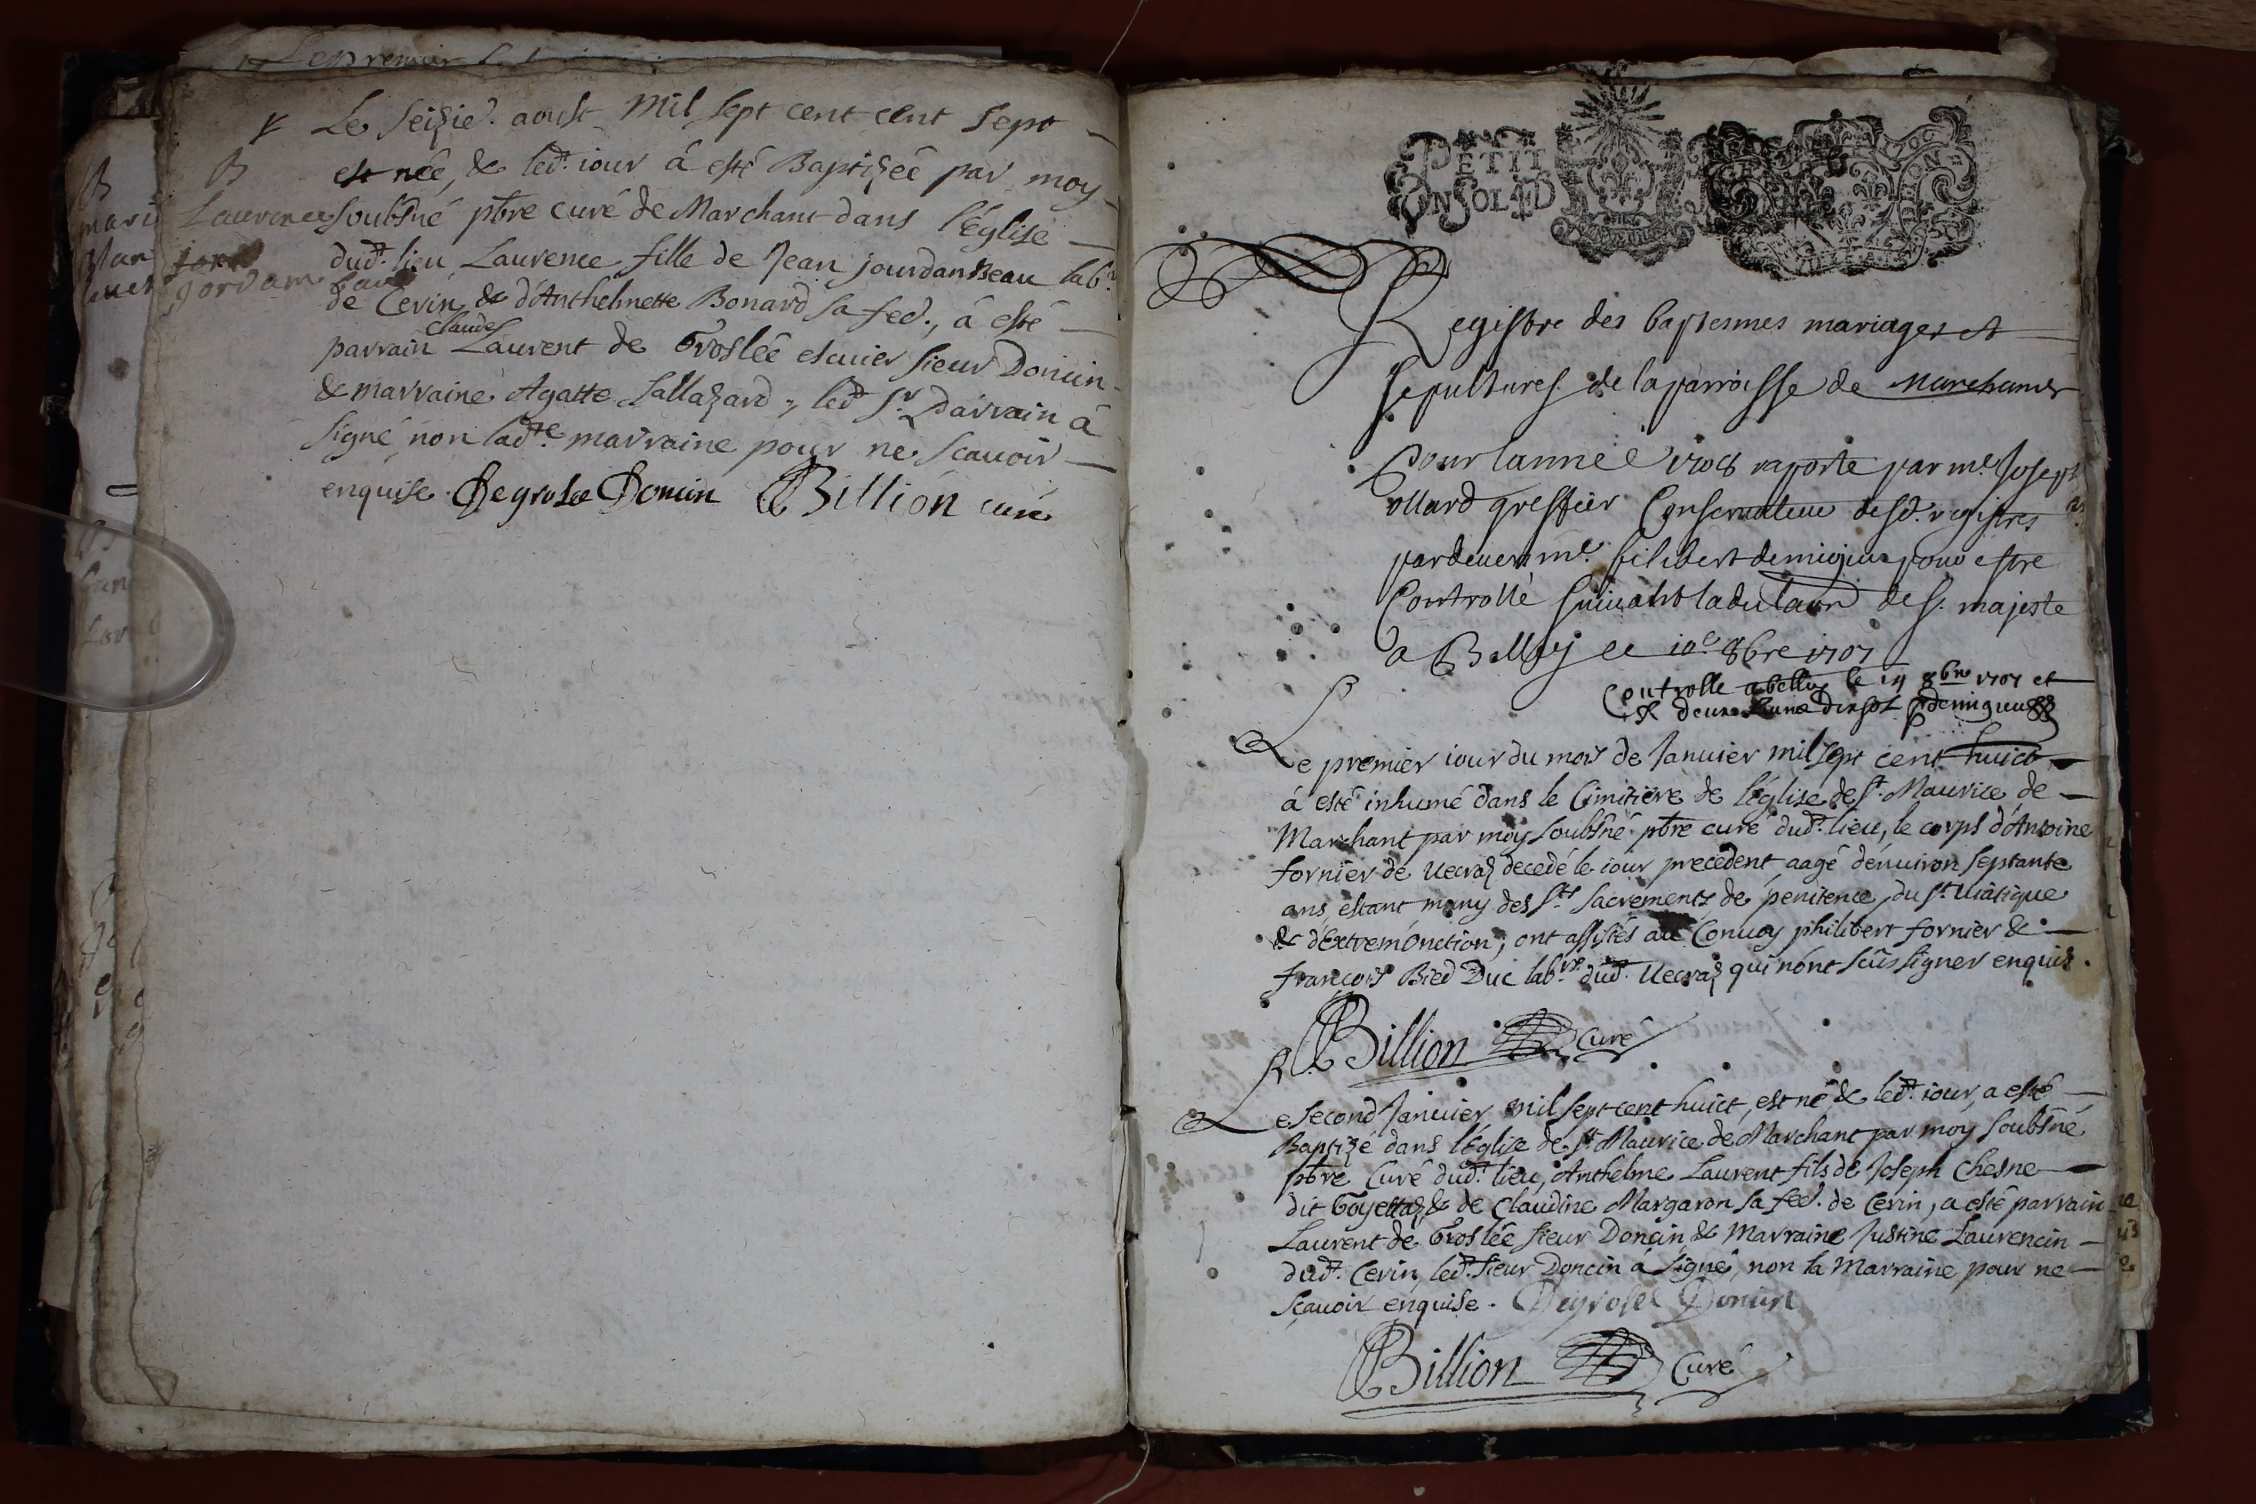 Le seizie. aoust mil sept cent cent sept
est neé, & led. iour â esté Baptizeé par moy
B
Laurence
Jordan
soubsné pbre curé de Marchant dans l'église
dud. lieu Laurence fille de Jean jourdan Beau lab.
de Cerin & d'Anthelmette Bonard sa fee., â esté
claude
parrain Laurent de Groslée escuier sieur Doncin
& marraine Agatte Sallazard, led. Sr. Parrain â
signé, non ladte. marraine pour ne scauoir
enquise. Degrolee Doncin Billion curé
PETIT
Registre des baptesmes mariages et
sepultures de la parroisse de Marchamp
Pour lannee 1708 raporte par me. Joseph
ollard greffier Conservateur desd. registres
pardevers me. filibert demigieu pour estre
Controllé suivant la de sa. majeste
a Belley ce 10e 8bre 1707
Controlle a belley le 14 8bre 1707 et
Le premier iour du mois de Januier mil sept cent huict
â esté inhumé dans le Cimitiere de l'église de St. Maurice de
Marchant par moy soubsné pbre curé dud. lieu, le corps d'Antoine
fornier de Uecraz decedé le iour precedent aagé d'enuiron septante
ans, estant muny des Sts. sacrements de penitence, du St. Uiatique
& d'Extrem'Onction, ont assistés au Conuoy philibert fornier &
francois Bied Duc labrs. dud. Uecraz qui n'ont scûs signer enquis.
Billion Curé
Le second Januier mil sept cent huict, est né & led. iour, a esté
Baptizé dans l'Église de St Maurice de Marchant par moy soubsné
pbre Curé dud. lieu, Anthelme Laurent fils de Joseph Chesne
dit Goyettaz & de Claudine Margaron sa fee. de Cerin, a esté parrain
Laurent de Groslée sieur Doncin & Marraine Justine Laurencin
dud. Cerin, led. sieur Doncin â signé, non la Marraine pour ne
scauoir enquise. Degrolee Doncin
Billion Curé